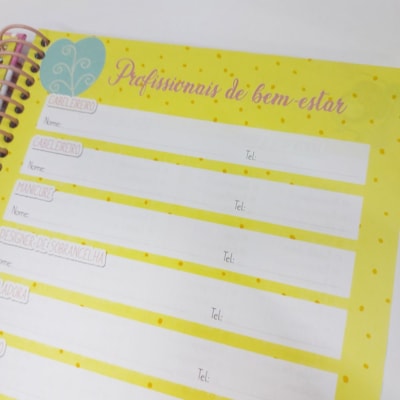 Profissionais de bem-estar
CABELEIREIRO
Nome: Tel:
CABELEIREIRO
Nome: Tel:
MANICURE
Nome: Tel:
DESIGNER DE SOBRANCELHA
Nome: Tel:
Tel:
Tel: